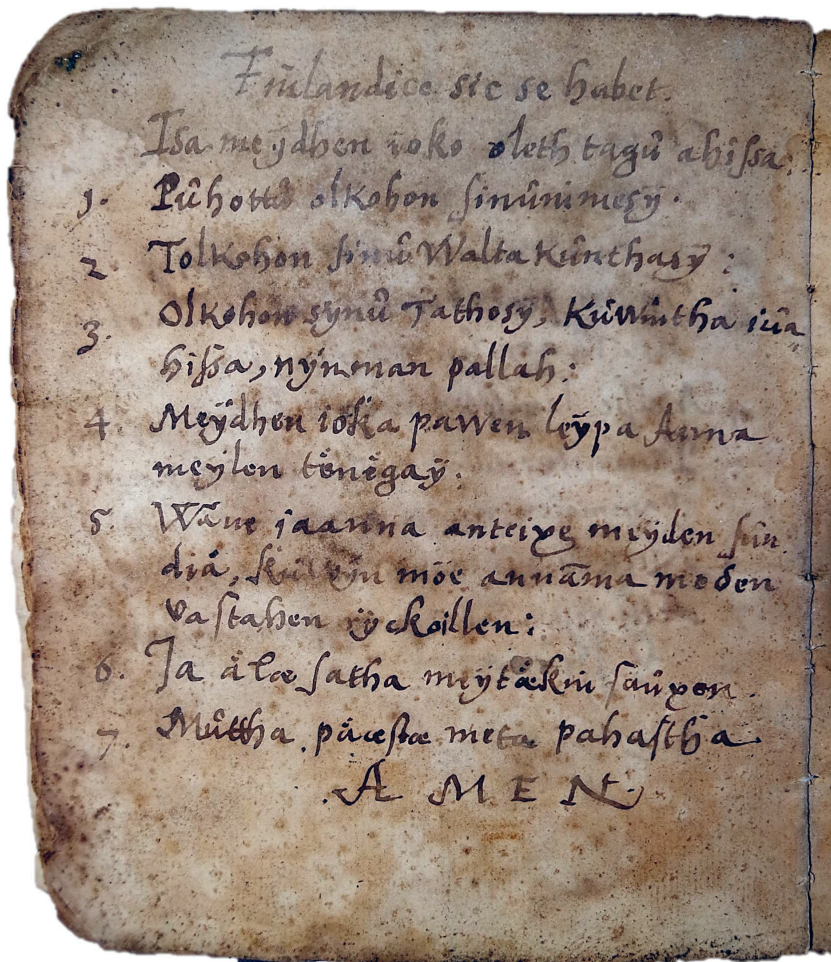 Finlandice sic se habet.
Isa meydhen ioko oleth tagŭ ahißa:
1. Pŭhottŭ olkohon sinŭnimesÿ.
2 Tolkohon sinŭ Walta kŭnthasÿ:
3. Olkohon synŭ Tathosÿ, kŭwintha iŭa
hißa, nÿn man pallah:
4. Meÿdhen iöka pawen leÿpa Anna
meylen tenëgaÿ.
5. Wäne iaanna anteixe meÿden sün
diä, möe annāma meden
vastahen rÿckoillen:
6. Ja äläe satha meÿtäkin saŭxon
7. Mŭttha päæstæ meta pahastha
AMEN.